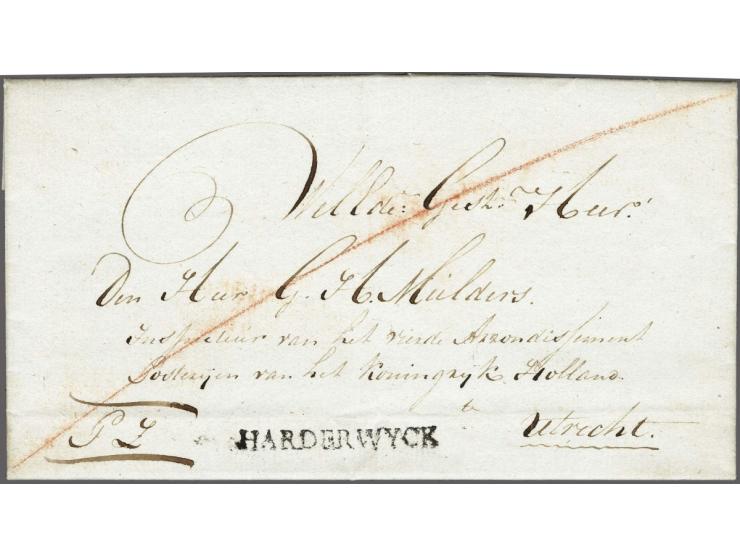 Wellde: Gestr. Heer!
Den Heer G. H. Mulders.
Inspecteur van het vierde Arrondissiment
Posterijen van het Koningryk Holland
te
P Z HARDERWYCK Utrecht.